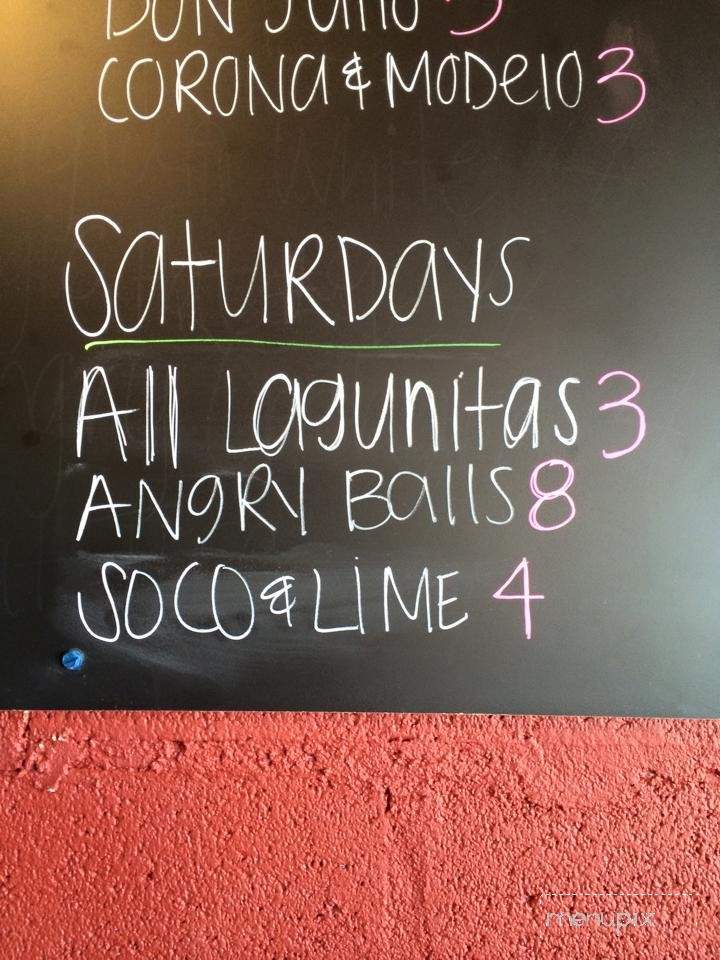 DON Julio
CORONA & MODelO 3
SatURDays
All Lagunitas 3
ANgRy Balls 8
SOCO & LIME 4
menupix